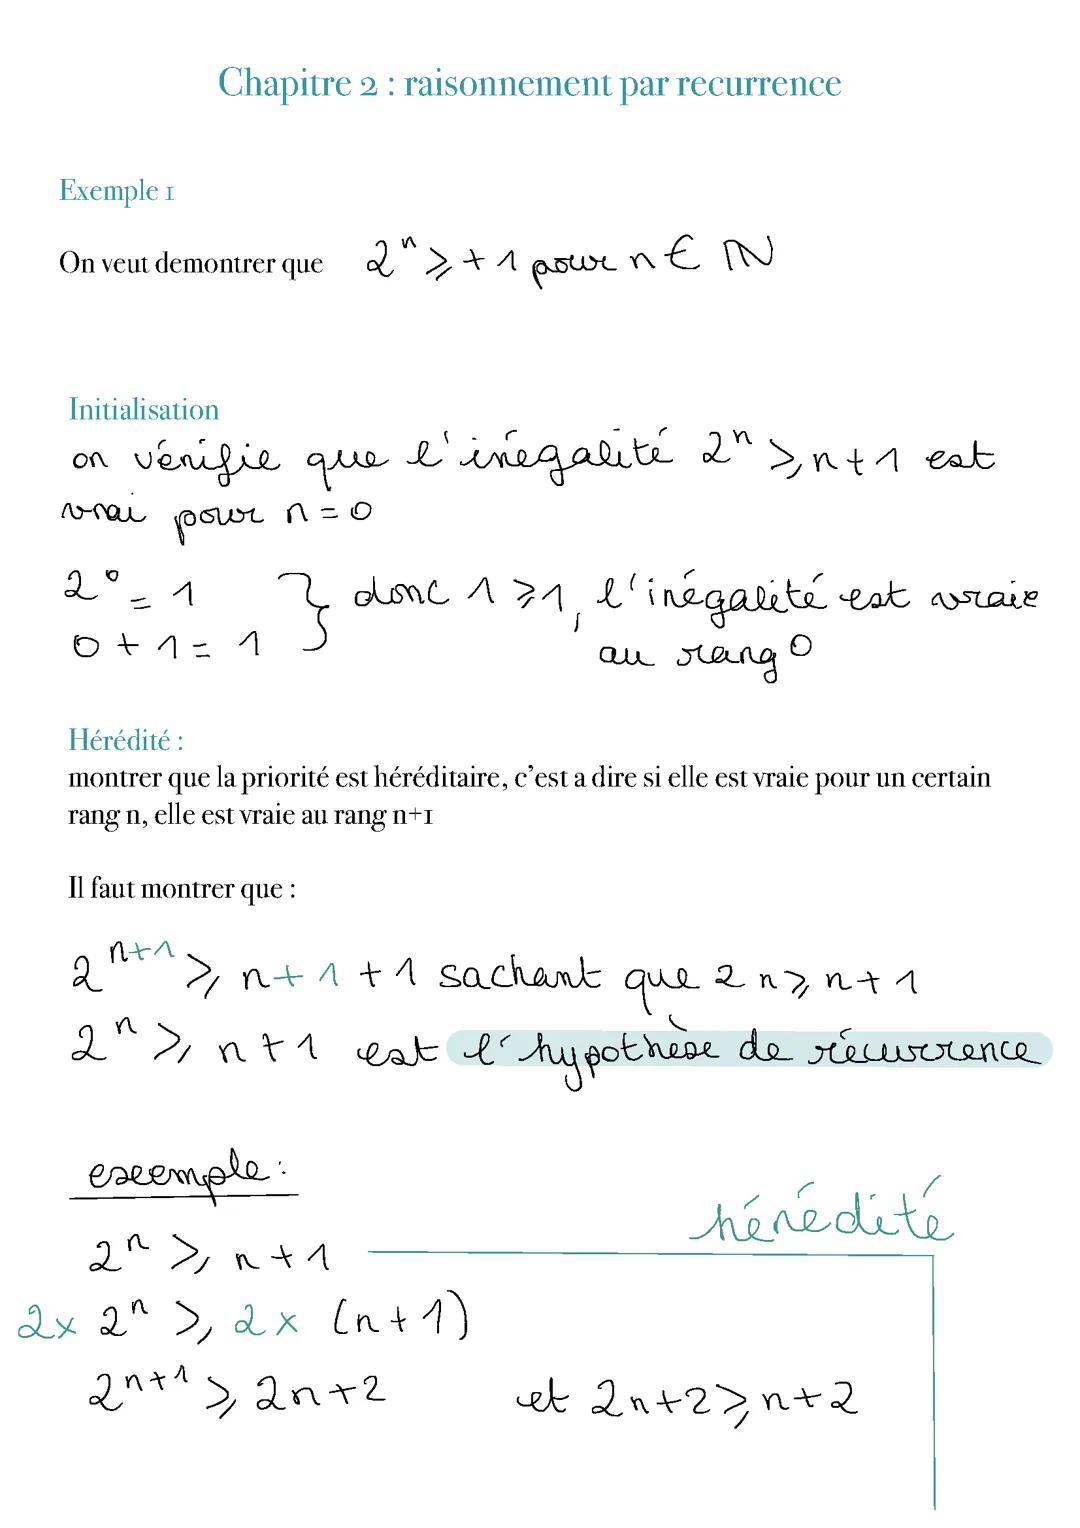 Chapitre 2 : raisonnement par recurrence
Exemple 1
On veut demontrer que 2ⁿ ⩾ + 1 pour n ∈ ℕ
Initialisation
on vérifie que l'inégalité 2ⁿ ⩾ n + 1 est
vrai pour n = 0
2⁰ = 1 } donc 1 ⩾ 1, l'inégalité est vraie
0 + 1 = 1 au rang 0
Hérédité :
montrer que la priorité est héréditaire, c'est a dire si elle est vraie pour un certain
rang n, elle est vraie au rang n+1
Il faut montrer que :
2ⁿ⁺¹ ⩾ n + 1 + 1 sachant que 2 n ⩾ n + 1
2ⁿ ⩾ n + 1 est l'hypothèse de récurrence
exemple :
hérédité
2ⁿ ⩾ n + 1
2x 2ⁿ ⩾ 2 x (n + 1)
2ⁿ⁺¹ ⩾ 2n + 2 et 2n + 2 ⩾ n + 2